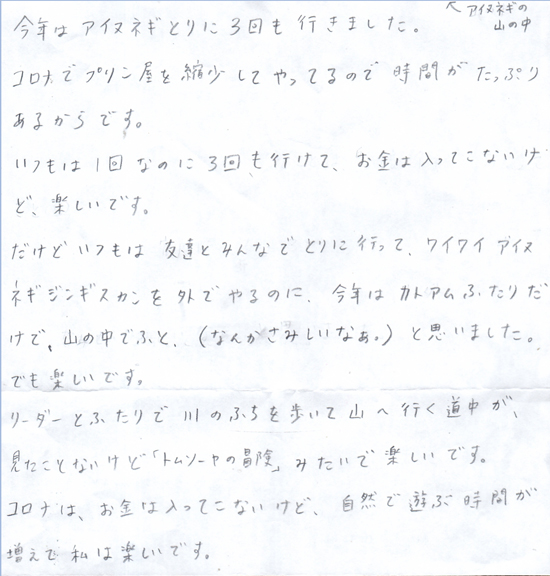 ↖アイヌネギの
山の中
今年は アイヌネギとりに 3回も 行きました。
コロナで プリン屋を 縮少 して やってるので 時間が たっぷり
あるからです。
いつもは 1回 なのに 3回も 行けて、お金は 入ってこないけ
ど、楽しいです。
だけど いつもは 友達と みんなで とりに 行って、ワイワイ アイヌ
ネギジンギスカンを 外で やるのに、今年は カトアム ふたりだ
けで、山の中で ふと、(なんかさみしいなぁ。) と 思いました。
でも 楽しいです。
リーダーと ふたりで 川の ふちを 歩いて 山へ 行く 道中が、
見たことないけど「トムソーヤの冒険」みたいで 楽しいです。
コロナは、お金は入ってこないけど、自然で 遊ぶ 時間が
増えて 私は 楽しいです。